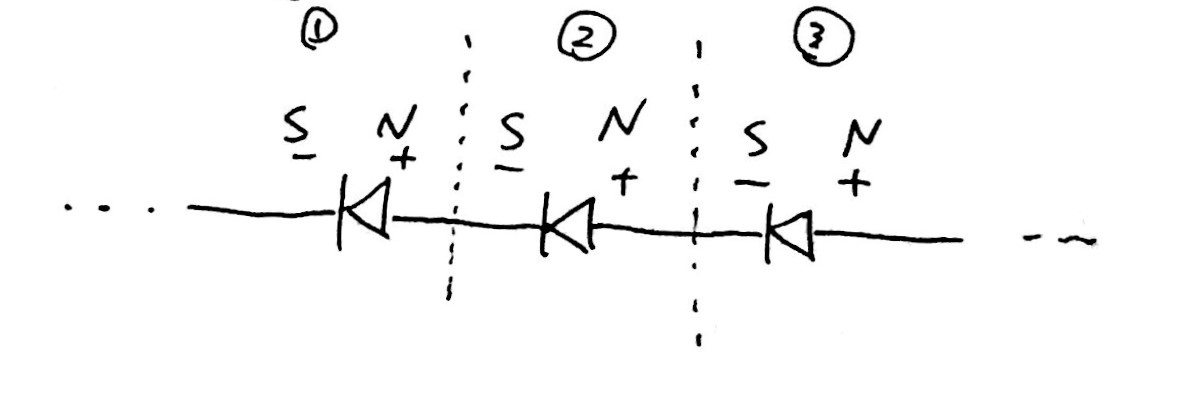 ① ② ③
S N S N S N
− + − + − +